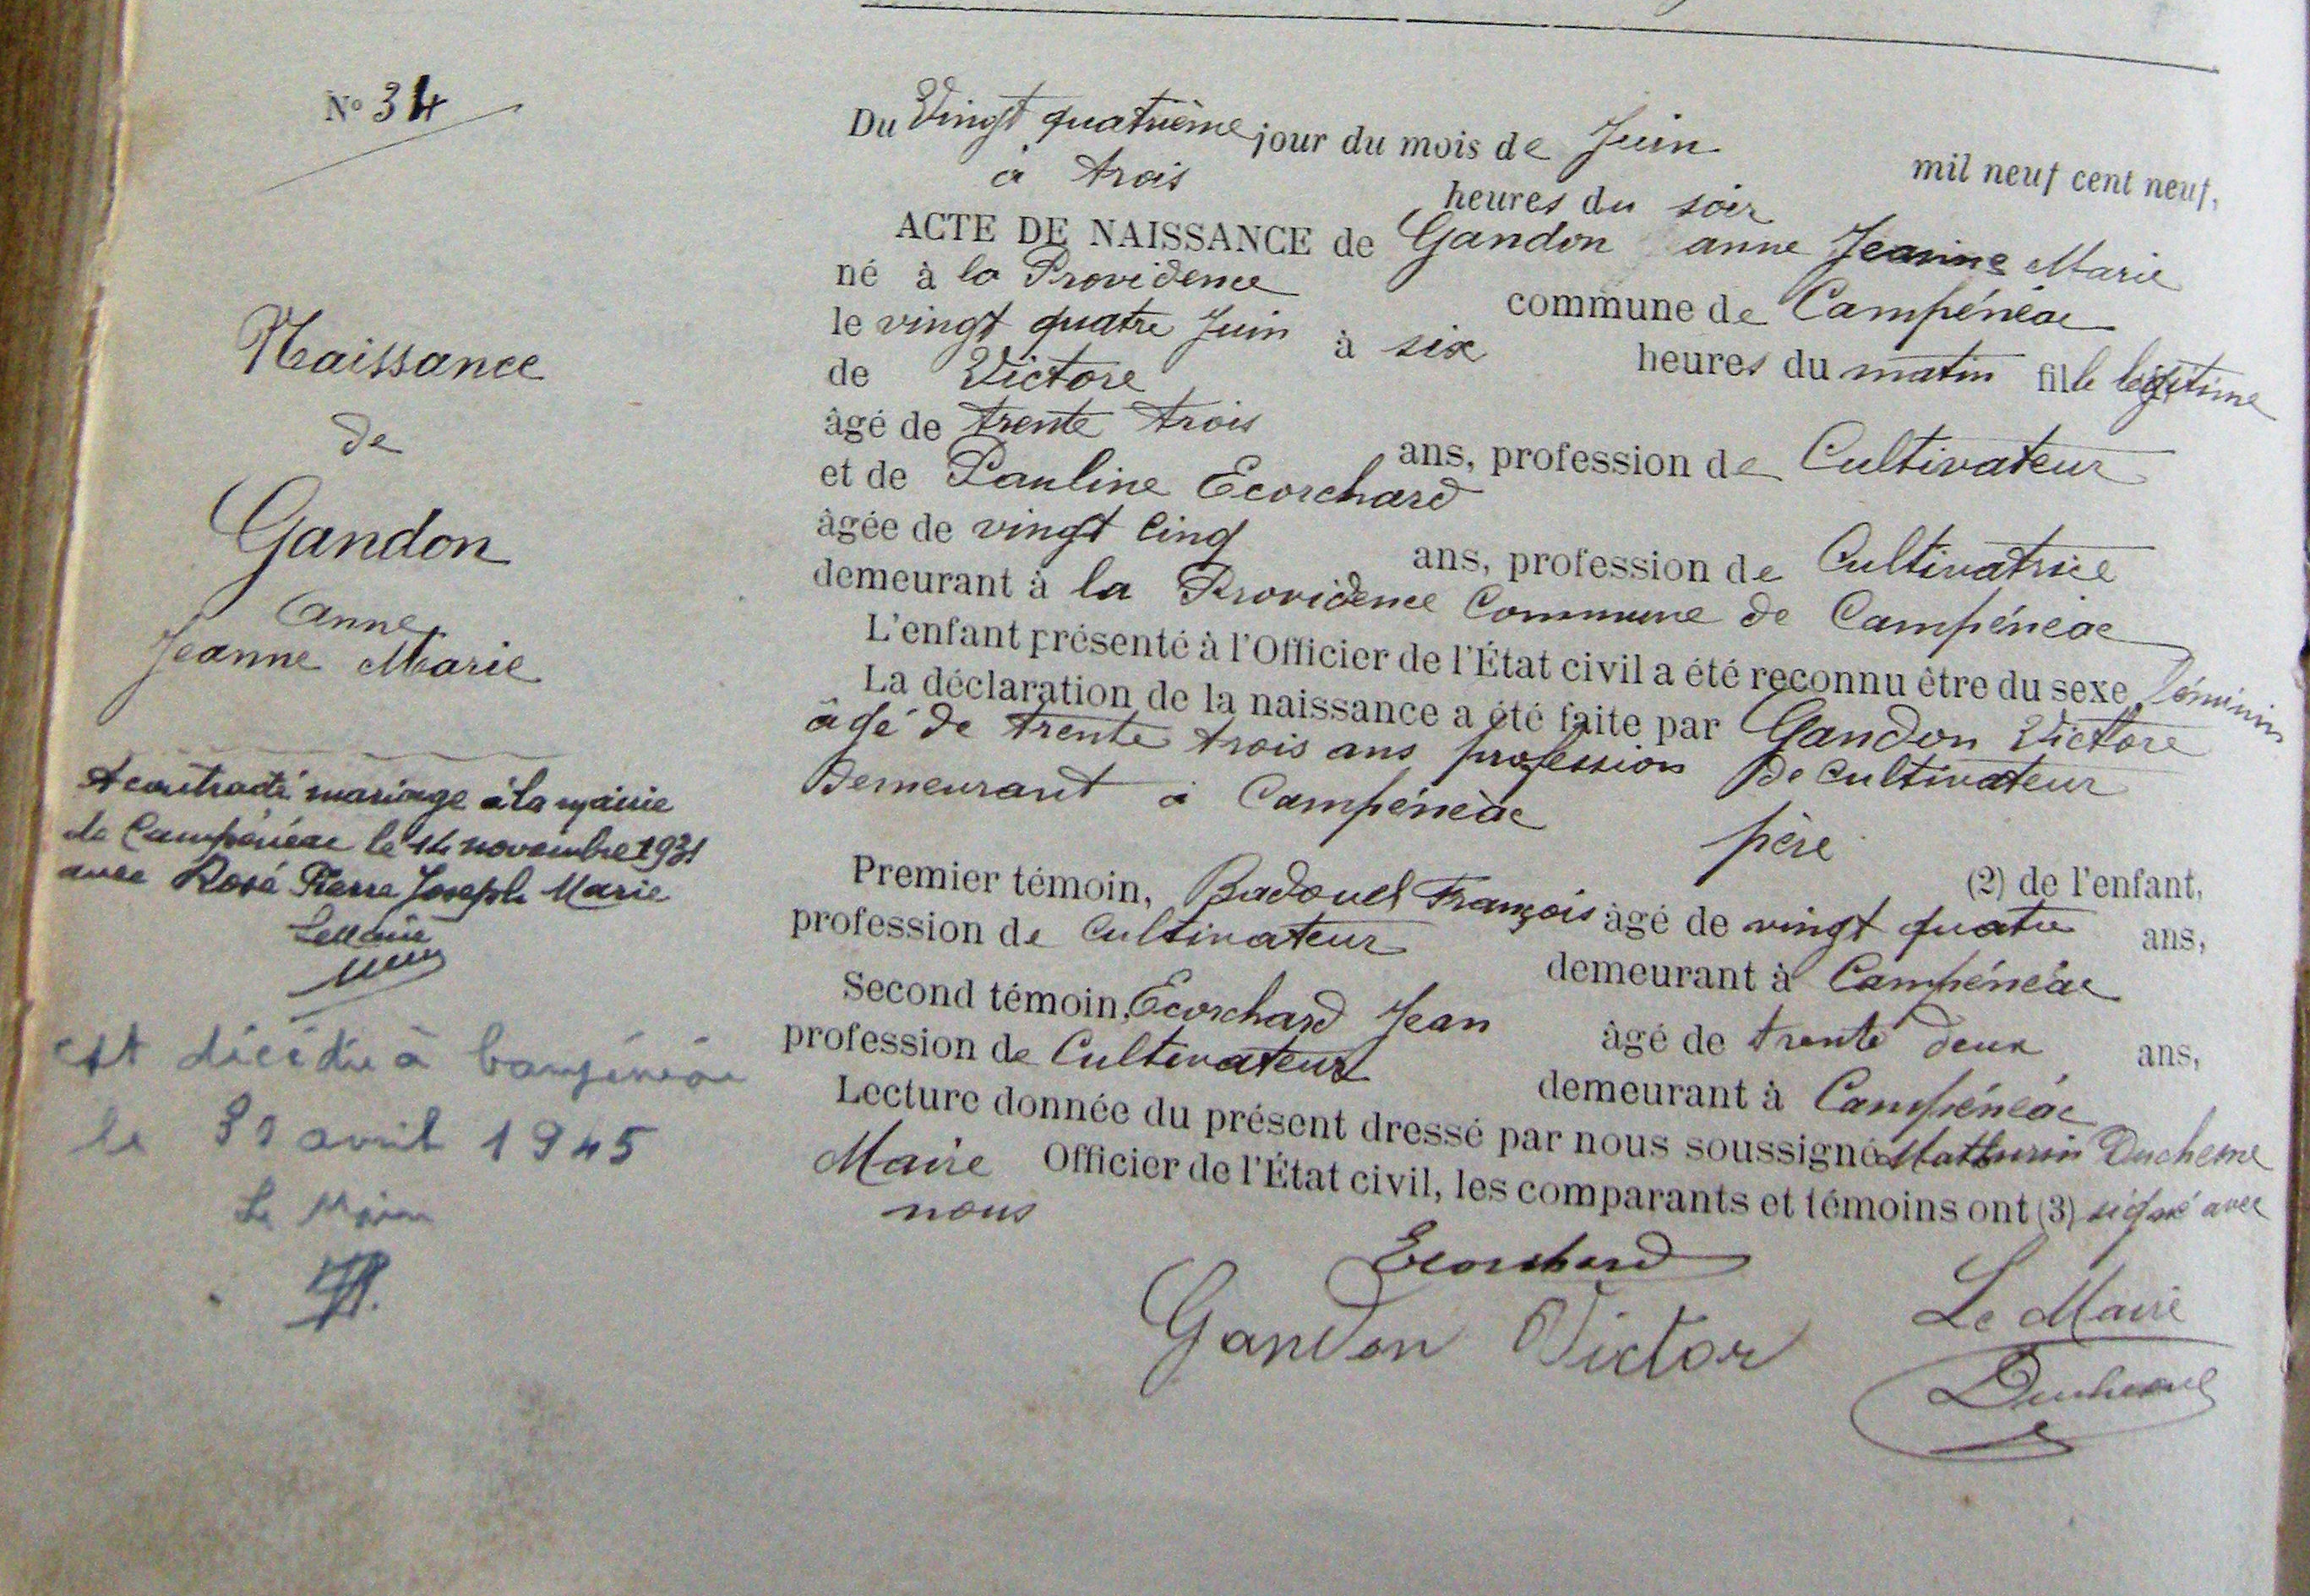 N° 34
Naissance
de
Gandon
Anne
Jeanne Marie
A contracté mariage à la mairie
de Campénéac le 14 novembre 1931
avec Rosé Pierre Joseph Marie
Le Maire
est décédée à Campénéac
le 30 avril 1945
Le Maire
Du Vingt quatrième jour du mois de Juin mil neuf cent neuf,
à trois heures du soir
ACTE DE NAISSANCE de Gandon Anne Jeanne Marie
né à la Providence commune de Campénéac
le vingt quatre Juin à six heures du matin fille légitime
de Victore
âgé de trente trois ans, profession de Cultivateur
et de Pauline Ecorchard
âgée de vingt cinq ans, profession de Cultivatrice
demeurant à la Providence Commune de Campénéac
L'enfant présenté à l'Officier de l'État civil a été reconnu être du sexe féminin
La déclaration de la naissance a été faite par Gandon Victore
âgé de trente trois ans profession de cultivateur
demeurant à Campénéac père (2) de l'enfant,
Premier témoin, Badouel François âgé de vingt quatre ans,
profession de Cultivateur demeurant à Campénéac
Second témoin, Ecorchard Jean âgé de trente deux ans,
profession de Cultivateur demeurant à Campénéac
Lecture donnée du présent dressé par nous soussigné Mathurin Duchesne
Maire Officier de l'État civil, les comparants et témoins ont (3) signé avec
nous
Ecorchard
Gandon Victor
Le Maire
Duchesne